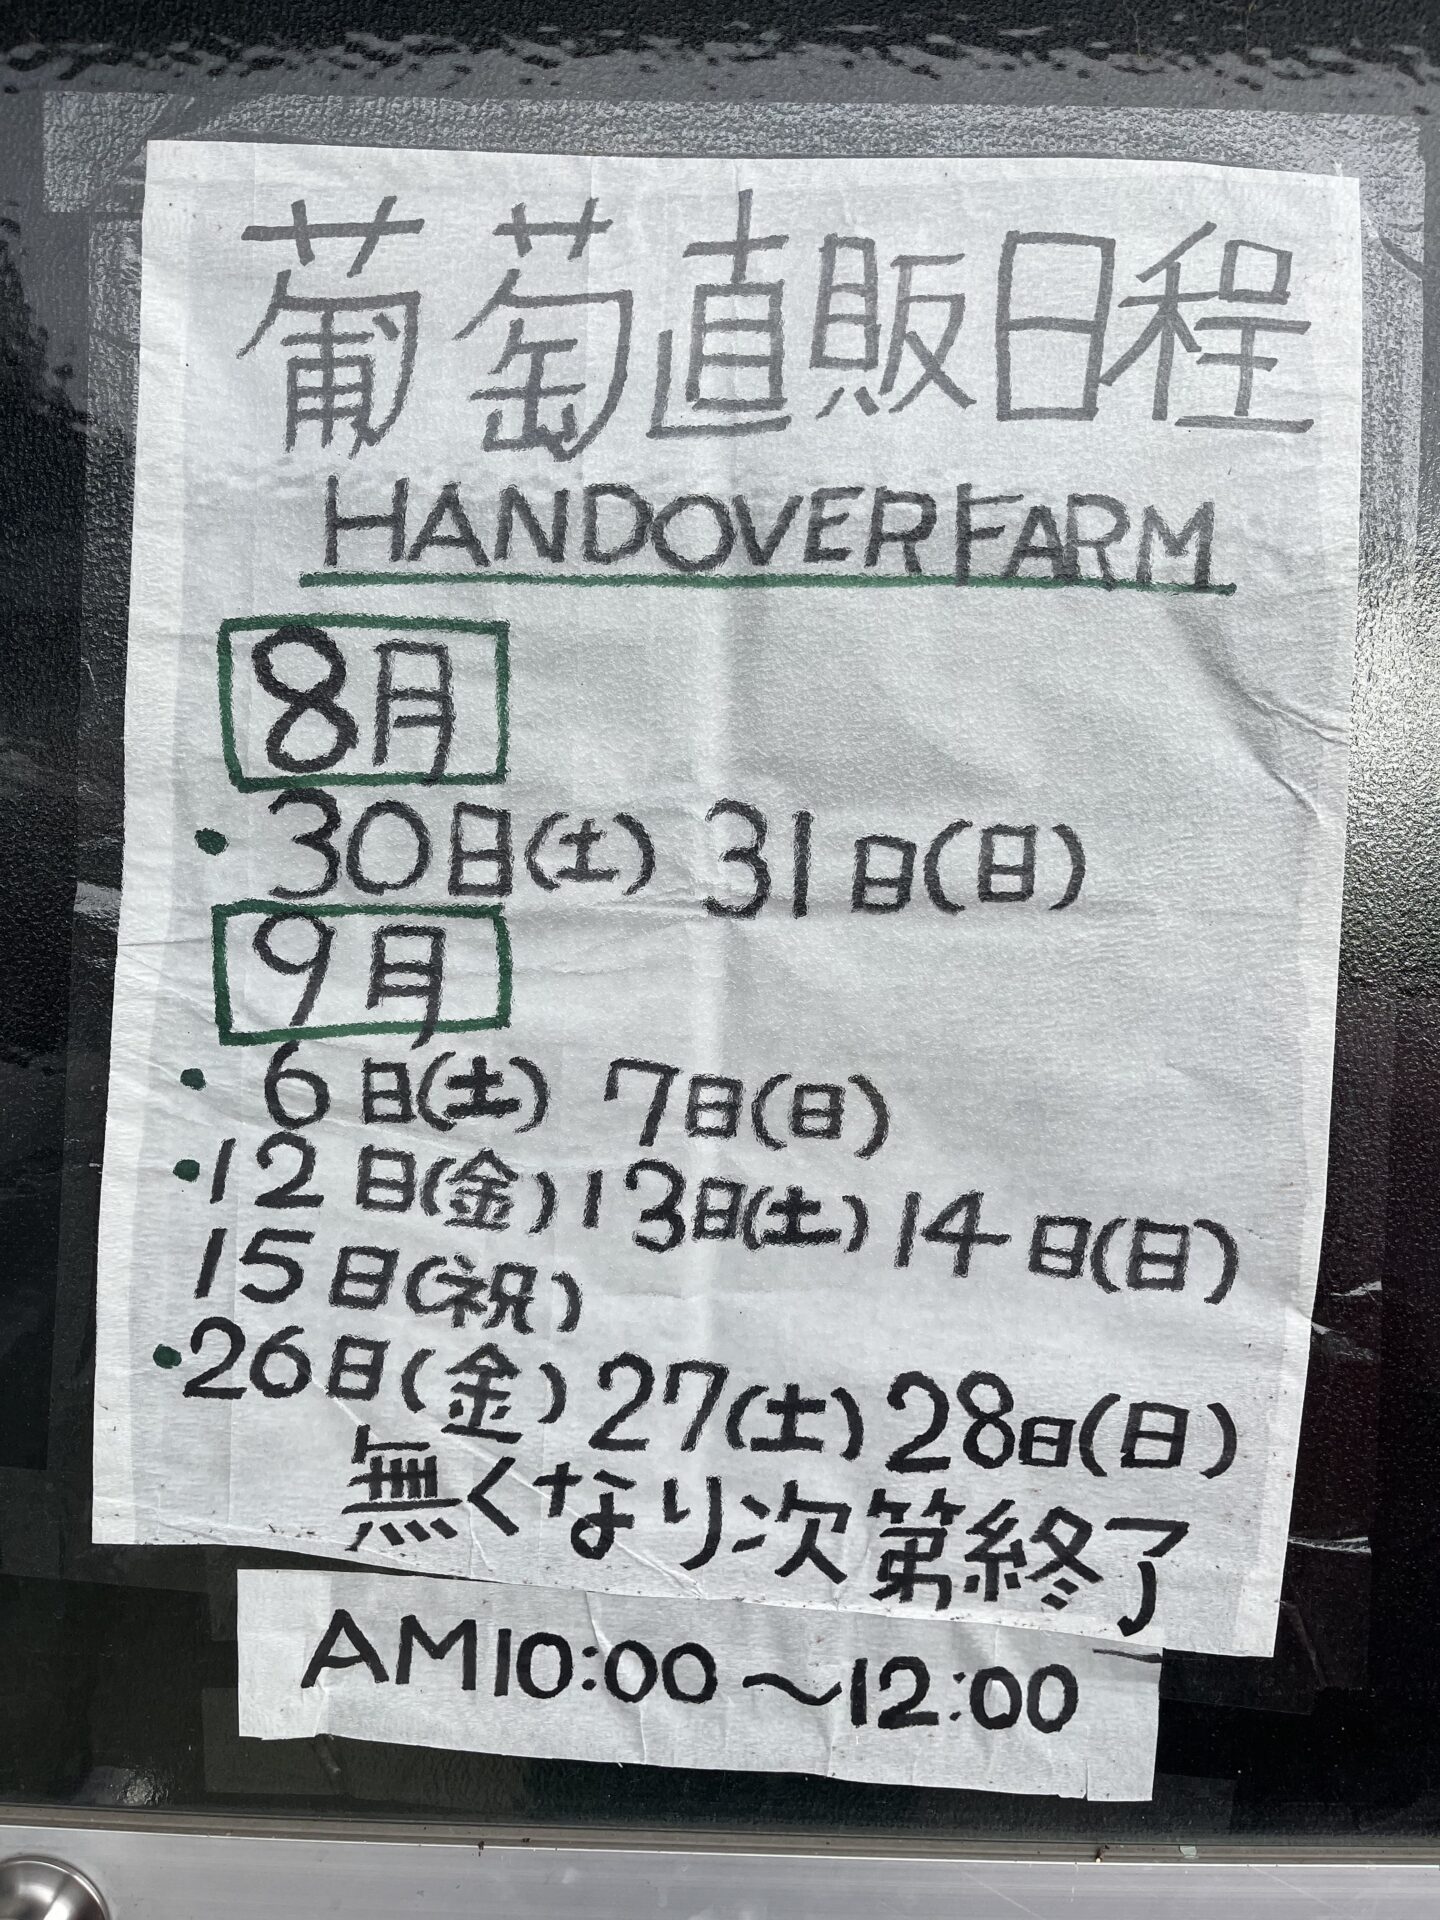 葡萄直販日程
HANDOVER FARM
8月
・30日(土) 31日(日)
9月
・6日(土) 7日(日)
・12日(金) 13日(土) 14日(日)
15日(祝)
・26日(金) 27(土) 28日(日)
無くなり次第終了
AM10:00～12:00